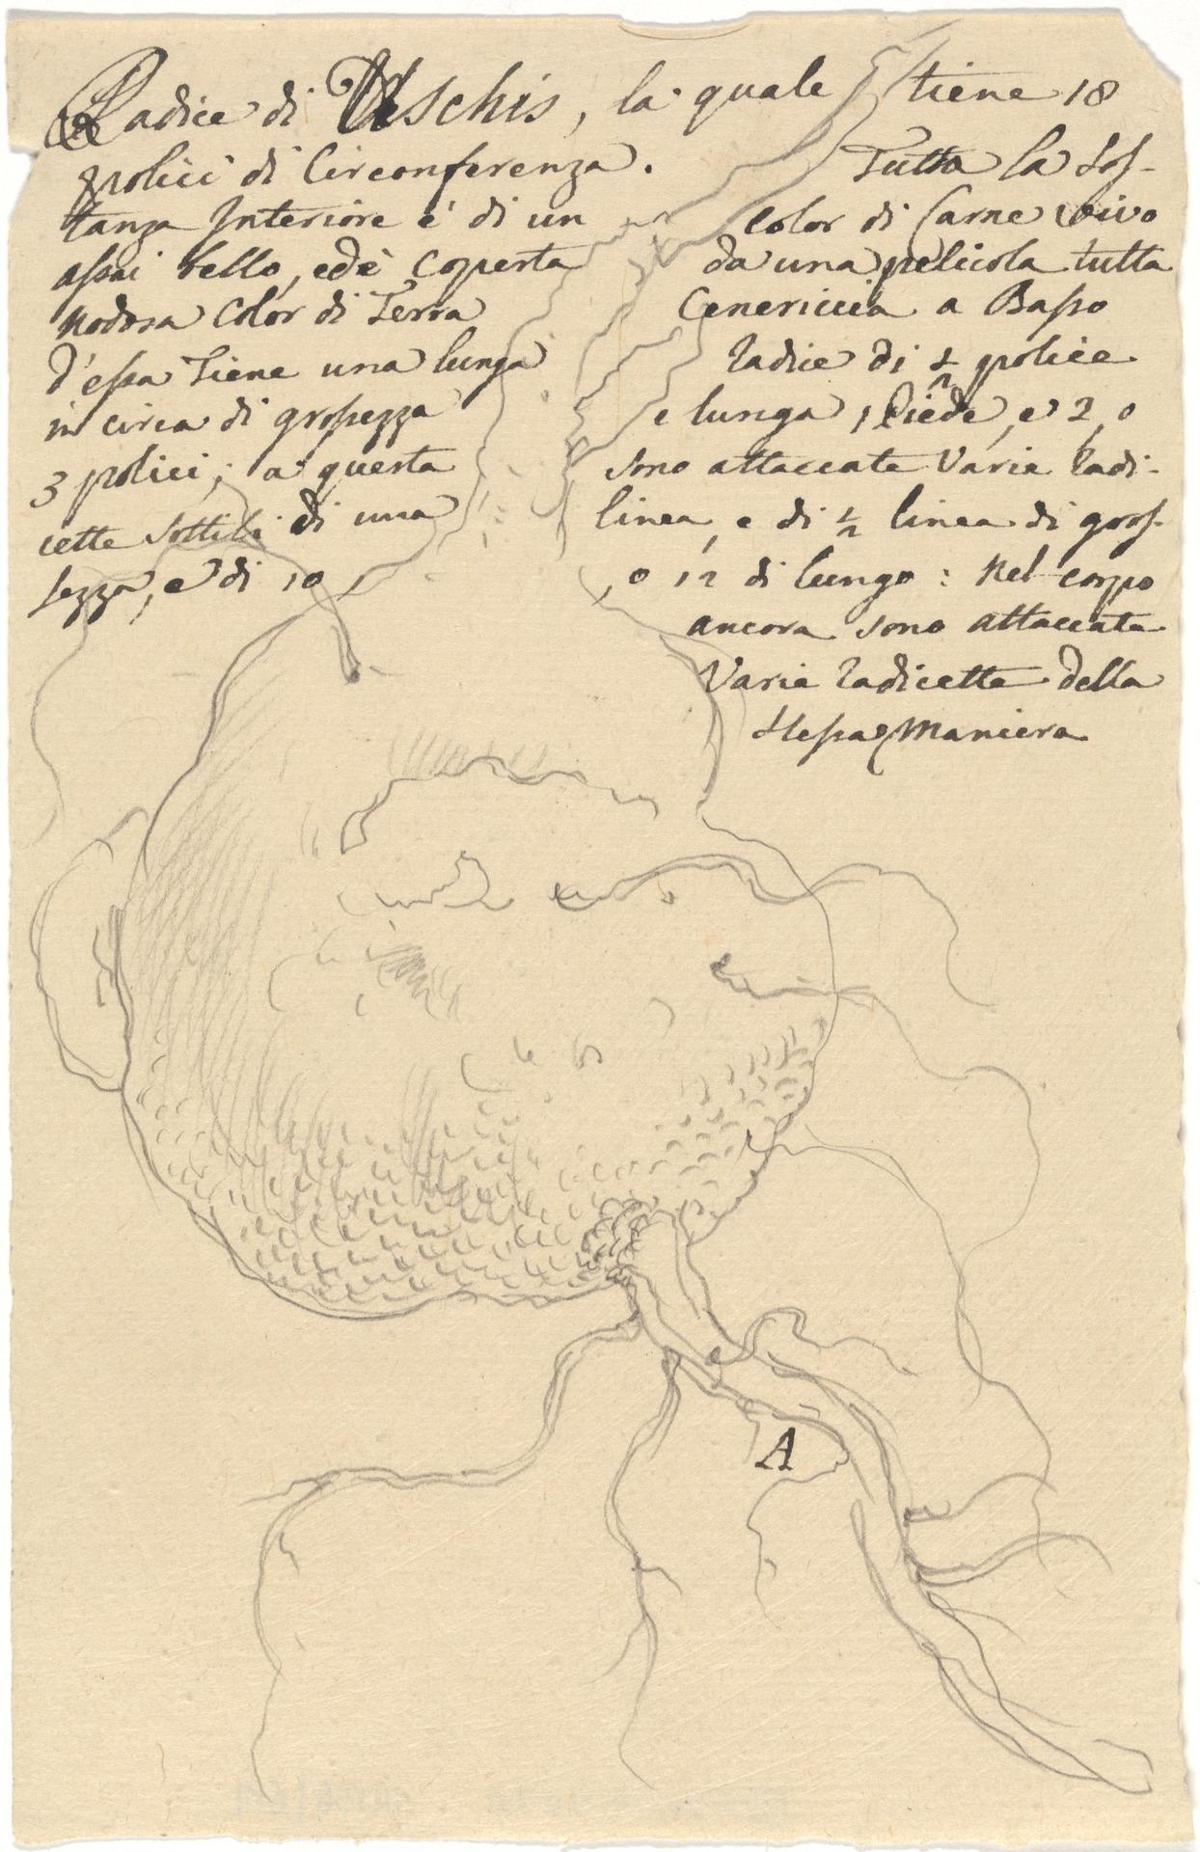 Radice di Uschis, la quale tiene 18
polici di Circonferenza. Tutta la sos-
tanza Interiore e' di un color di Carne vivo
assai bello, ed è coperta da una pelicola tutta
nodosa Color di Terra Cenericcia a Basso
d'essa Tiene una lunga radice di ½ police
in circa di grossezza e lunga 1 Piede, e 2, o
3 polici; a questa sono attaccate Varie Radi-
cette sottili di una linea, e di ½ linea di gros-
sezza, e di 10, o 12 di lungo: Nel corpo
ancora sono attaccate
Varie radicette della
stessa Maniera
A